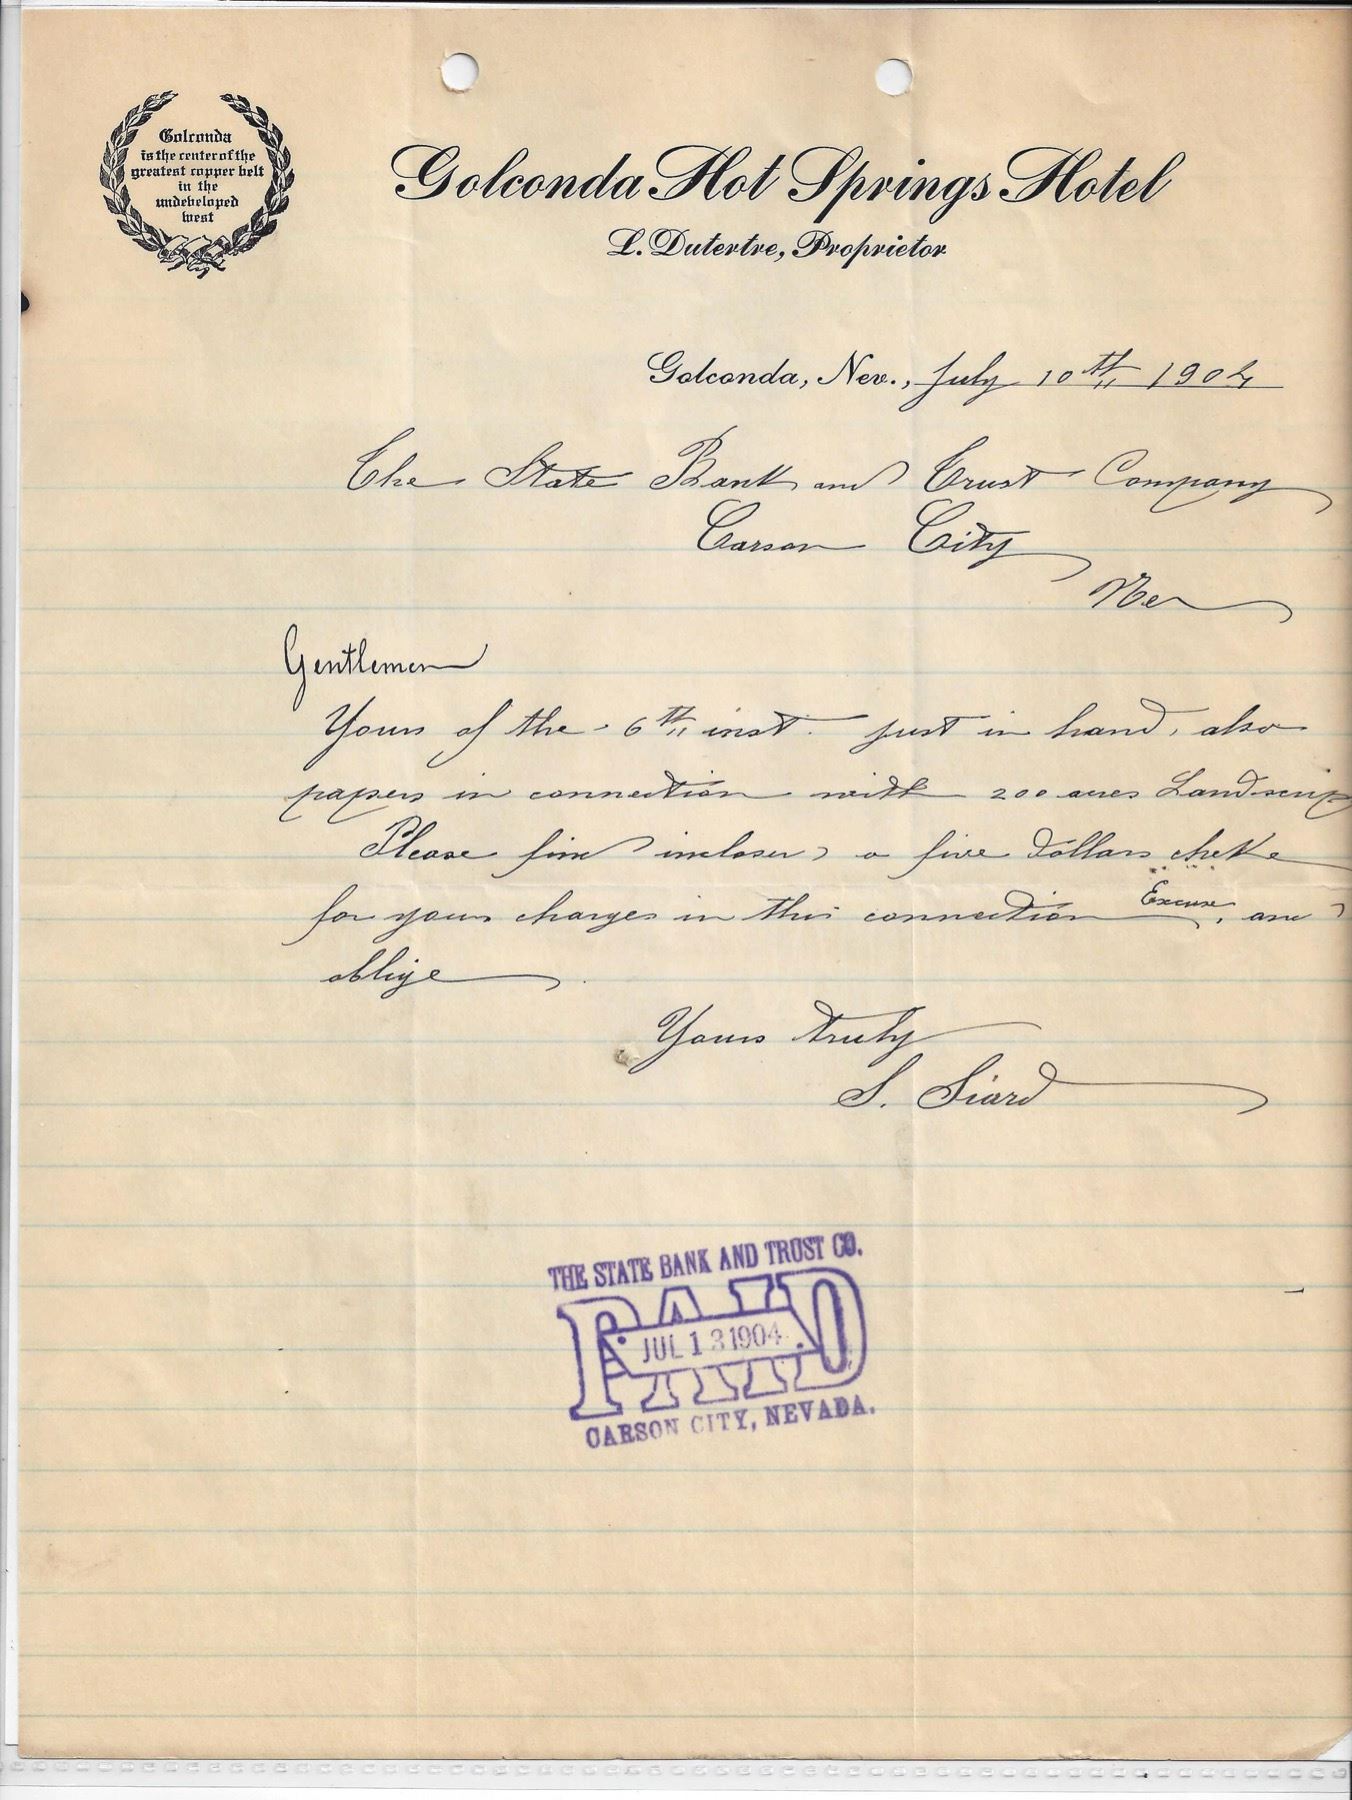 Golconda
is the center of the
greatest copper belt
in the
undeveloped
west
Golconda Hot Springs Hotel
L. Dutertre, Proprietor
Golconda, Nev., July 10th 1904
The State Bank and Trust Company
Carson City
Nev
Gentlemen
Yours of the 6th inst. just in hand, also
papers in connection with 200 acres Landscrip
Please find inclosed a five dollars cheke
for yours charges in this connection Excuse, and
oblige
Yours truly
S. Siard
THE STATE BANK AND TRUST CO.
PAID
JUL 13 1904
CARSON CITY, NEVADA.